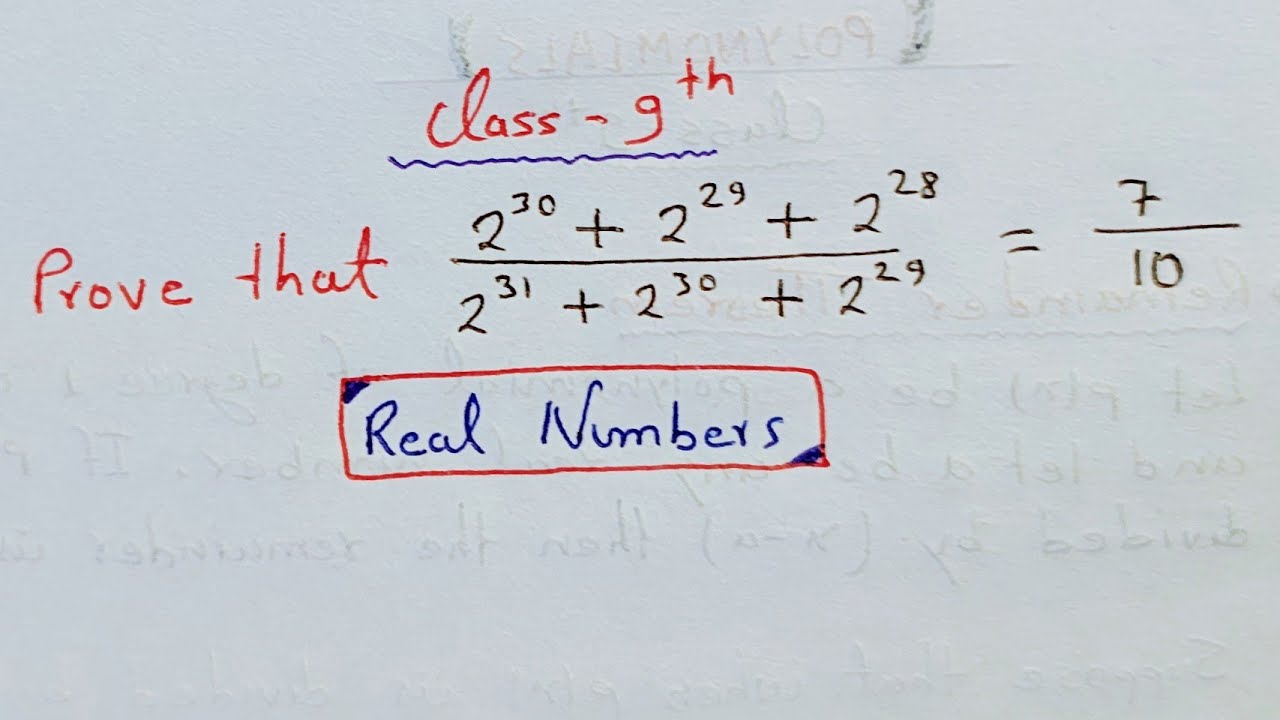 Class - 9th
Prove that (2^30 + 2^29 + 2^28) / (2^31 + 2^30 + 2^29) = 7/10
Real Numbers